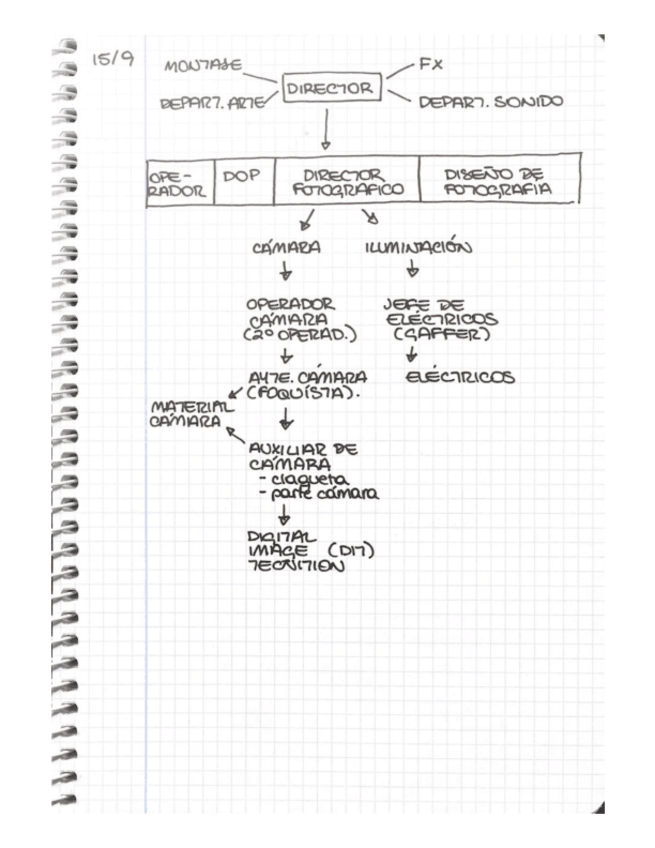 15/9
MONTAJE
FX
DIRECTOR
DEPART. ARTE
DEPART. SONIDO
OPE-
RADOR
DOP
DIRECTOR
FOTOGRAFICO
DISEÑO DE
FOTOGRAFIA
CÁMARA
ILUMINACIÓN
OPERADOR
CÁMARA
(2º OPERAD.)
JEFE DE
ELÉCTRICOS
(GAFFER)
AYTE. CÁMARA
(FOQUÍSTA).
ELÉCTRICOS
MATERIAL
CÁMARA
AUXILIAR DE
CÁMARA
- claqueta
- parte cámara
DIGITAL
IMAGE (DIT)
TECNITION